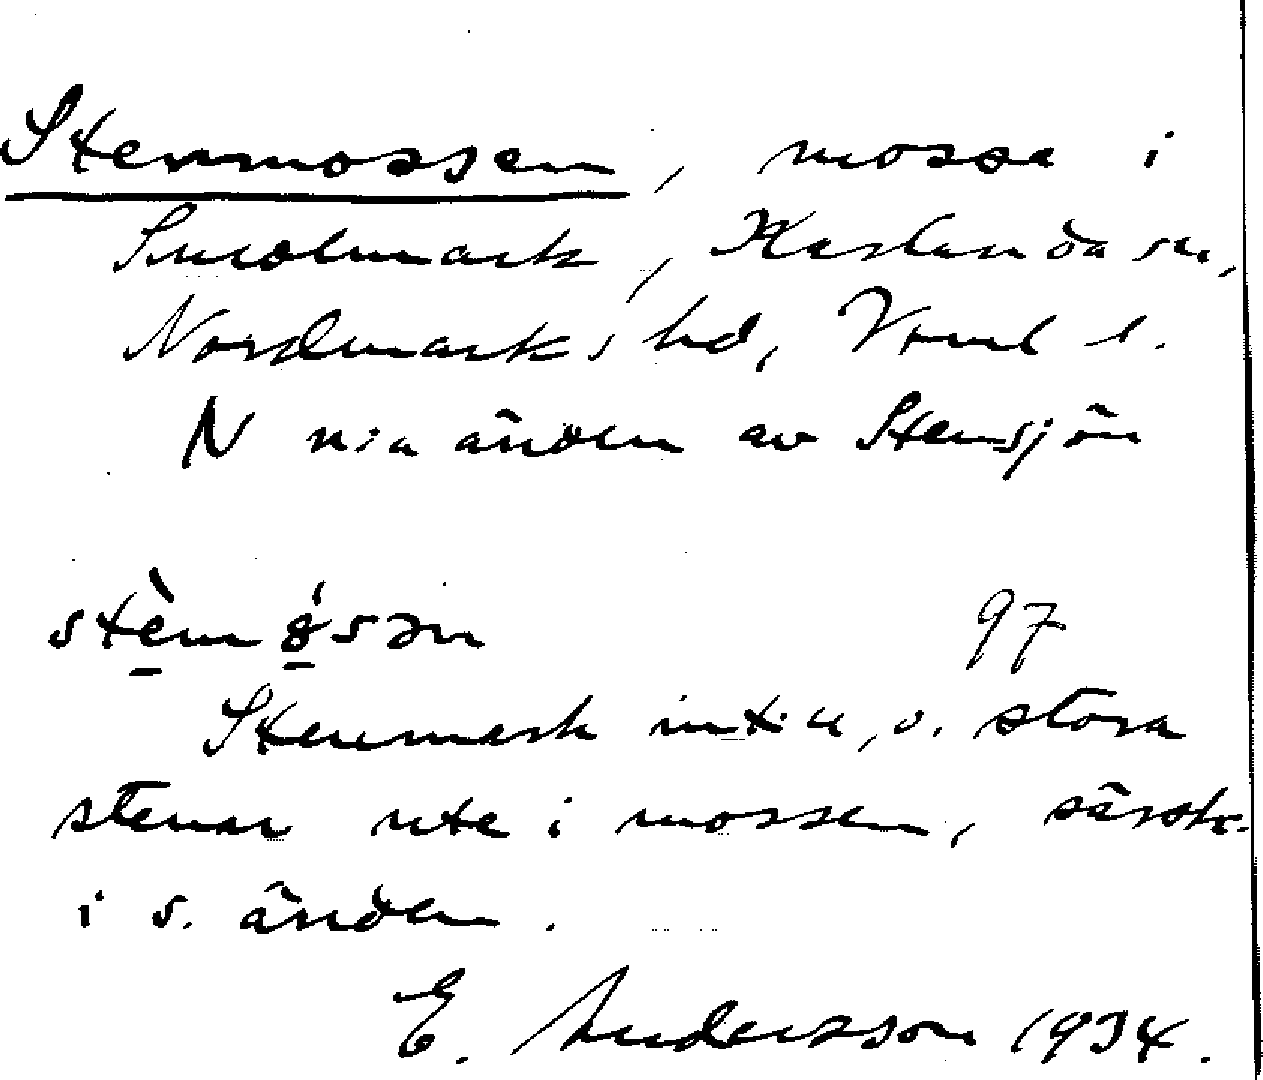 Stenmossen, mosse i
Smolmark, Karlanda sn,
Nordmarks hd, Vrml l.
N n:a änden av Stensjön
stèm ǿsən 97
Stenmark int:u, o. stora
stenar ute i mossen, särsk.
i s. änden.
E. Andersson 1934.